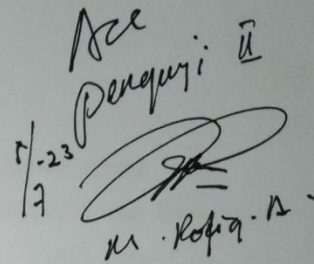 Acc
Penguji II
5/7 -23
M. Rofiq. A.